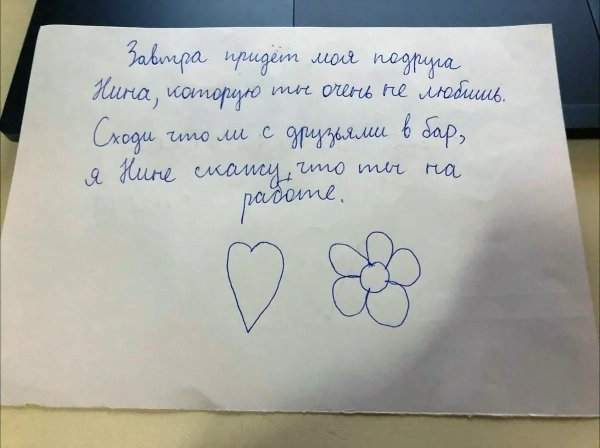 Завтра придёт моя подруга
Нина, которую ты очень не любишь.
Сходи что ли с друзьями в бар,
я Нине скажу, что ты на
работе.